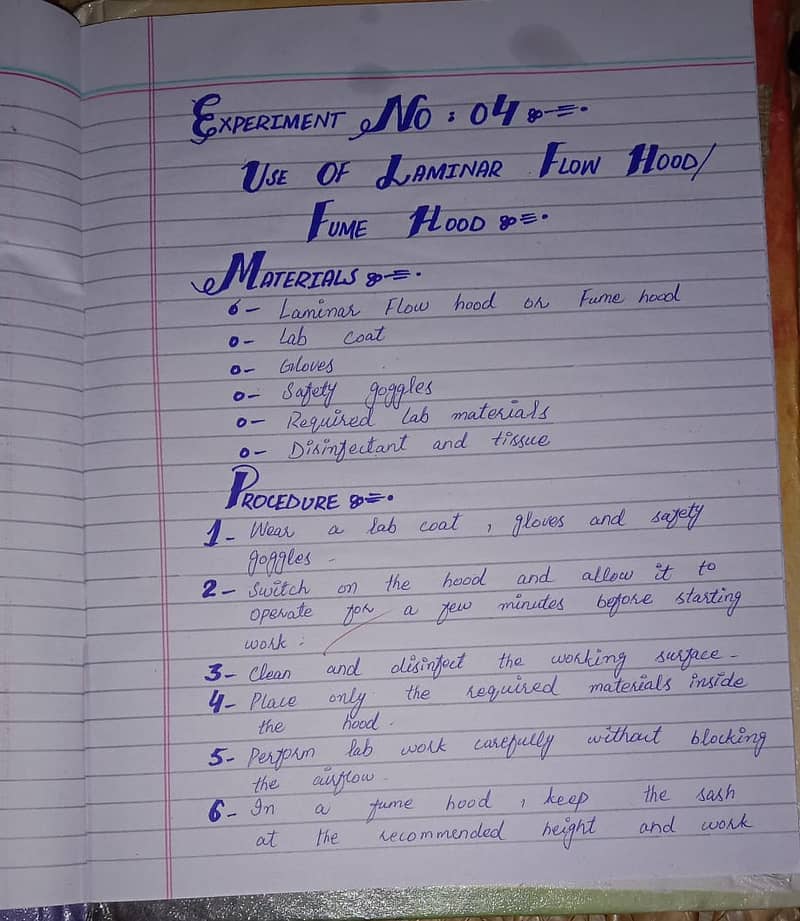 EXPERIMENT NO : 04
USE OF LAMINAR FLOW HOOD/
FUME HOOD
MATERIALS
o- Laminar Flow hood or Fume hood
o- Lab coat
o- Gloves
o- Safety goggles
o- Required Lab materials
o- Disinfectant and tissue
PROCEDURE
1- Wear a lab coat , gloves and safety
goggles -
2- Switch on the hood and allow it to
operate for a few minutes before starting
work :
3- Clean and disinfect the working surface -
4- Place only the required materials inside
the hood .
5- Perform lab work carefully without blocking
the airflow -
6- In a fume hood , keep the sash
at the recommended height and work